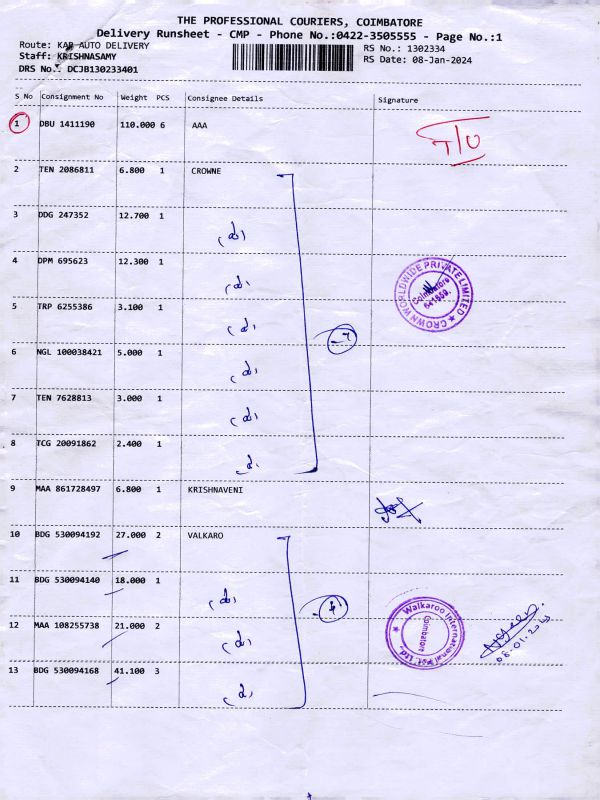 THE PROFESSIONAL COURIERS, COIMBATORE
Delivery Runsheet - CMP - Phone No.:0422-3505555 - Page No.:1
Route: KAR AUTO DELIVERY
RS No.: 1302334
Staff: KRISHNASAMY
RS Date: 08-Jan-2024
DRS No.: DCJB130233401
S No Consignment No Weight PCS Consignee Details Signature
1 DBU 1411190 110.000 6 AAA
2 TEN 2086811 6.800 1 CROWNE
3 DDG 247352 12.700 1
4 DPM 695623 12.300 1
CROWN WORLDWIDE PRIVATE LIMITED
Coimbatore
641659.
5 TRP 6255386 3.100 1
6 NGL 100038421 5.000 1
7 TEN 7628813 3.000 1
8 TCG 20091862 2.400 1
9 MAA 861728497 6.800 1 KRISHNAVENI
10 BDG 530094192 27.000 2 VALKARO
11 BDG 530094140 18.000 1
12 MAA 108255738 21.000 2
Walkaroo International Pvt. Ltd.
Coimbatore
13 BDG 530094168 41.100 3